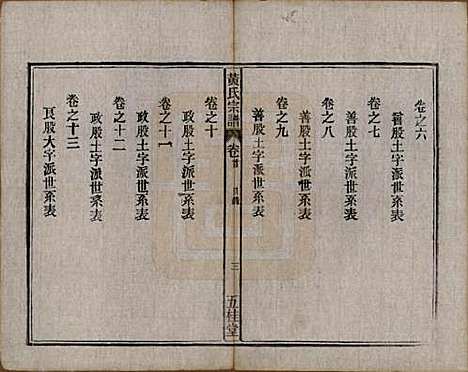 卷之六
善股土字派世系表
卷之七
善股土字派世系表
卷之八
善股土字派世系表
卷之九
善股土字派世系表
黃氏宗譜
卷首
目錄
三
五桂堂
卷之十
政股土字派世系表
卷之十一
政股土字派世系表
卷之十二
政股土字派世系表
卷之十三
良股大字派世系表